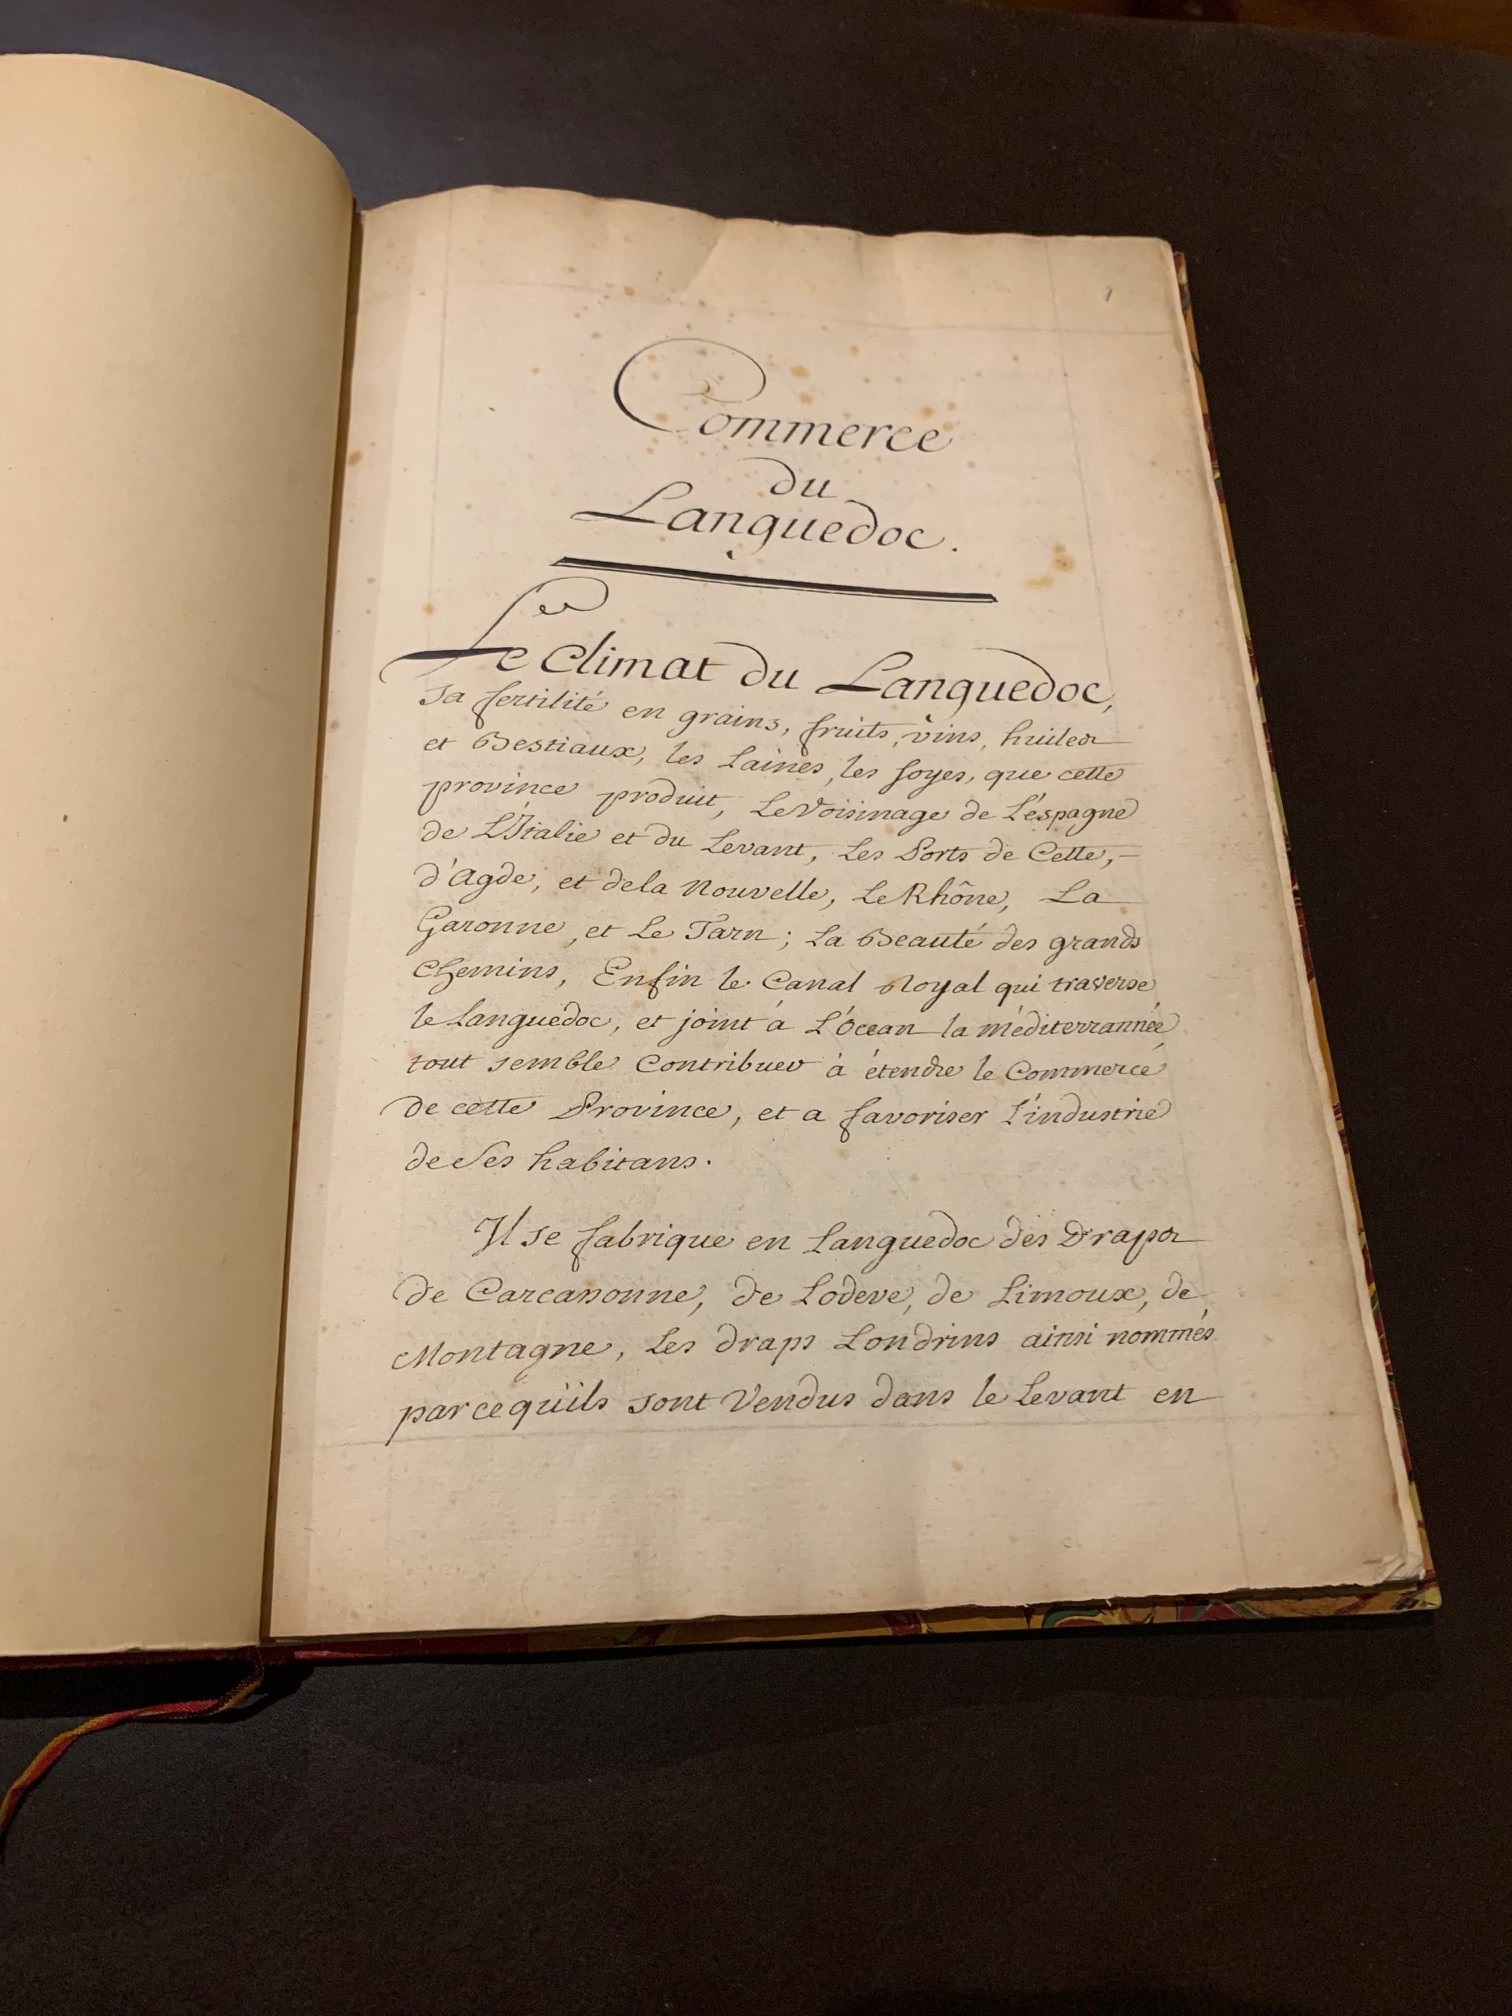 1
Commerce
du
Languedoc.
Le Climat du Languedoc,
sa fertilité en grains, fruits, vins, huiles
et Bestiaux, les Laines, les soyes, que cette
province produit, Le Voisinage de L'éspagne
de L'Italie et du Levant, Les Ports de Cette,
d'Agde, et dela Nouvelle, Le Rhône, La
Garonne, et Le Tarn; La Beauté des grands
Chemins, Enfin le Canal Royal qui traverse
le Languedoc, et joint à L'Ocean la méditerrannée
tout semble Contribuer à étendre le Commerce
de cette Province, et a favoriser l'industrie
de Ses habitans.
Il se fabrique en Languedoc des Draps
de Carcassonne, de Lodeve, de Limoux, de
Montagne, Les draps Londrins ainsi nommés
parcequ'ils sont Vendus dans le Levant en